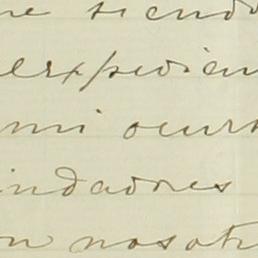 e siendo
expedien
mi ocurr
indadores
on nosotr